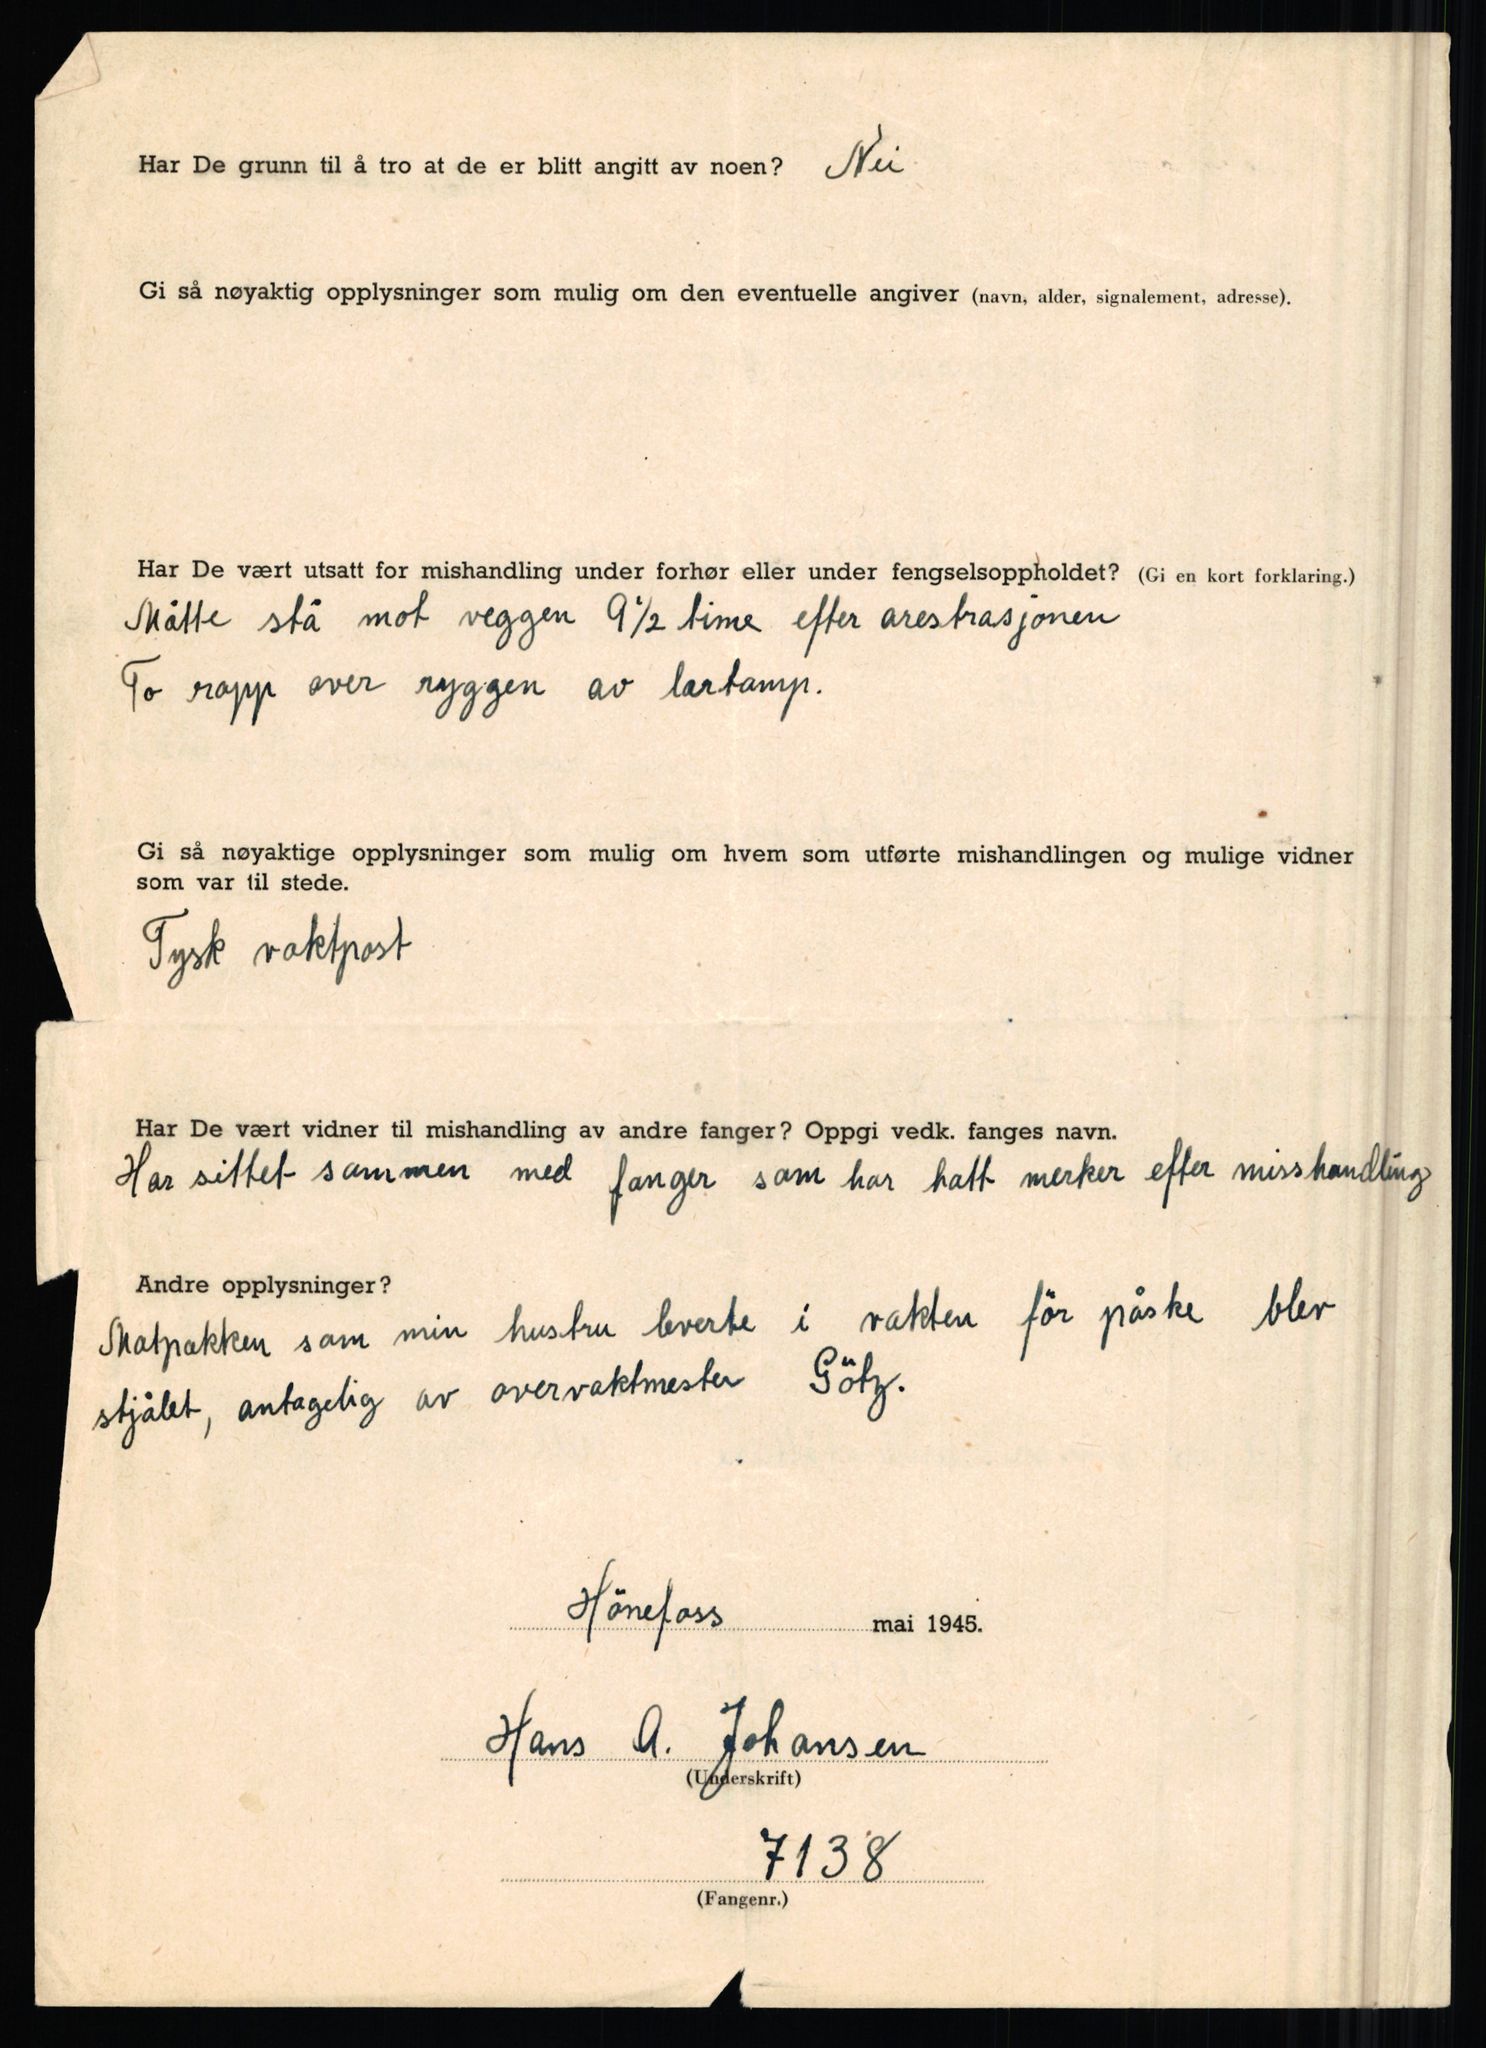 Har De grunn til å tro at de er blitt angitt av noen? Nei
Gi så nøyaktig opplysninger som mulig om den eventuelle angiver (navn, alder, signalement, adresse).
Har De vært utsatt for mishandling under forhør eller under fengselsoppholdet? (Gi en kort forklaring.)
Måtte stå mot veggen 9 1/2 time efter arestrasjonen
To rapp over ryggen av lærtamp.
Gi så nøyaktige opplysninger som mulig om hvem som utførte mishandlingen og mulige vidner
som var til stede.
Tysk vaktpost
Har De vært vidner til mishandling av andre fanger? Oppgi vedk. fanges navn.
Har sittet sammen med fanger som har hatt merker efter misshandling
Andre opplysninger?
Matpakken som min hustru leverte i vakten för påske blev
stjålet, antagelig av overvaktmester Götz.
Hönefoss mai 1945.
Hans A. Johansen
(Underskrift)
7138
(Fangenr.)